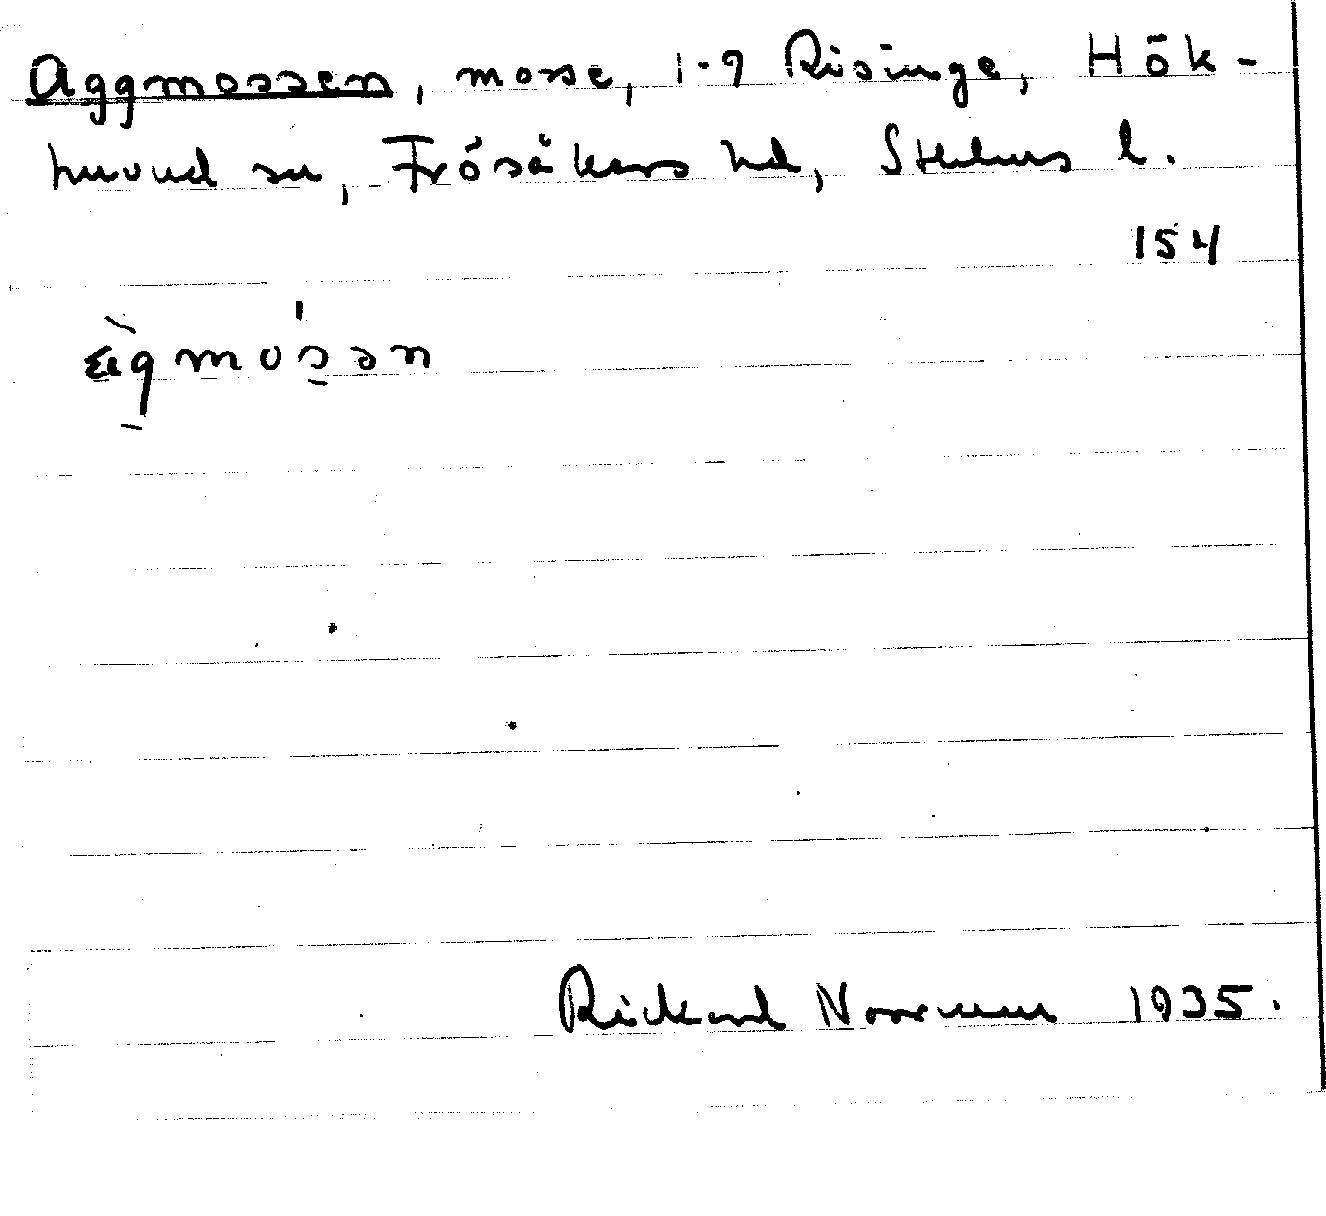 Aggmossen, mosse, 1-9 Risinge, Hök-
huvud sn, Frösåkers hd, Sthlms l.
154
Rickard Norrman 1935.